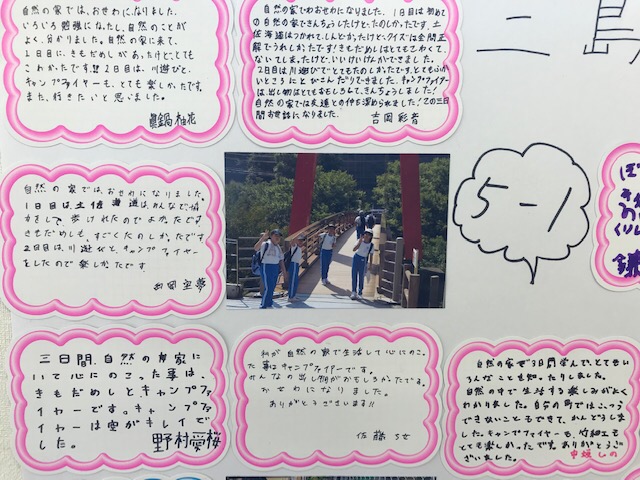 自然の家では、おせわになりました。
いろいろ勉強になったし、自然のことが
よく分かりました。自然の家に来て、
1日目に、きもだめしがあったけど、とても
こわかったです。2日目は川遊びと、
キャンプファイヤーも、とても楽しかったです。
また、行きたいと思いました。
眞鍋 柚花
自然の家でわおせわになりました。1日目は初めて
の自然の家できんちょうしたけど、たのしかったです。土
佐海道はつかれて、しんどかったけど、クイズは全問正
解でうれしかったです!きもだめしはとてもこわくて、
ないてしまったけど、いいけいけんができました。
2日目は川遊びでとてもたのしかったです。とてもふか
いところにとびこんだりできました。キャンプファイヤー
は、出し物はとてもおもしろくて、きんちょうしました!
自然の家では友達との仲を深められました!この三日
間お世話になりました。
吉岡 彩音
三島
5-1
自然の家では、おせわになりました。
1日目は、土佐海道は、みんなで協
力をして、歩けれたのでよかったです。
きもだめしも、すごくたのしかったです
2日目は、川遊びと、キャンプファイヤー
をしたので楽しかたです
三日間、自然の家に
いて心にのこった事は、
きもだめしとキャンプファ
イヤーです。キャンプファ
イヤーは空がキレイで
した。
野村愛桜
私が自然の家で生活して心にのこっ
た事はキャンプファイヤーです。
みんなの出し物がおもしろかたです。
おせわになりました。
ありがとうございます!!
佐藤 ちせ
自然の家で3日間学んで、とてもい
ろんなことも知ったりしました。
自然の中で生活する楽しみがよく
わかりました。自分の町ではこういう
できないこともできて、かんどうしま
した。キャンプファイヤーも、竹細工も
とても楽しかったです。ありがとうご
ざいました。
中坂 しの
ぼ
鎌